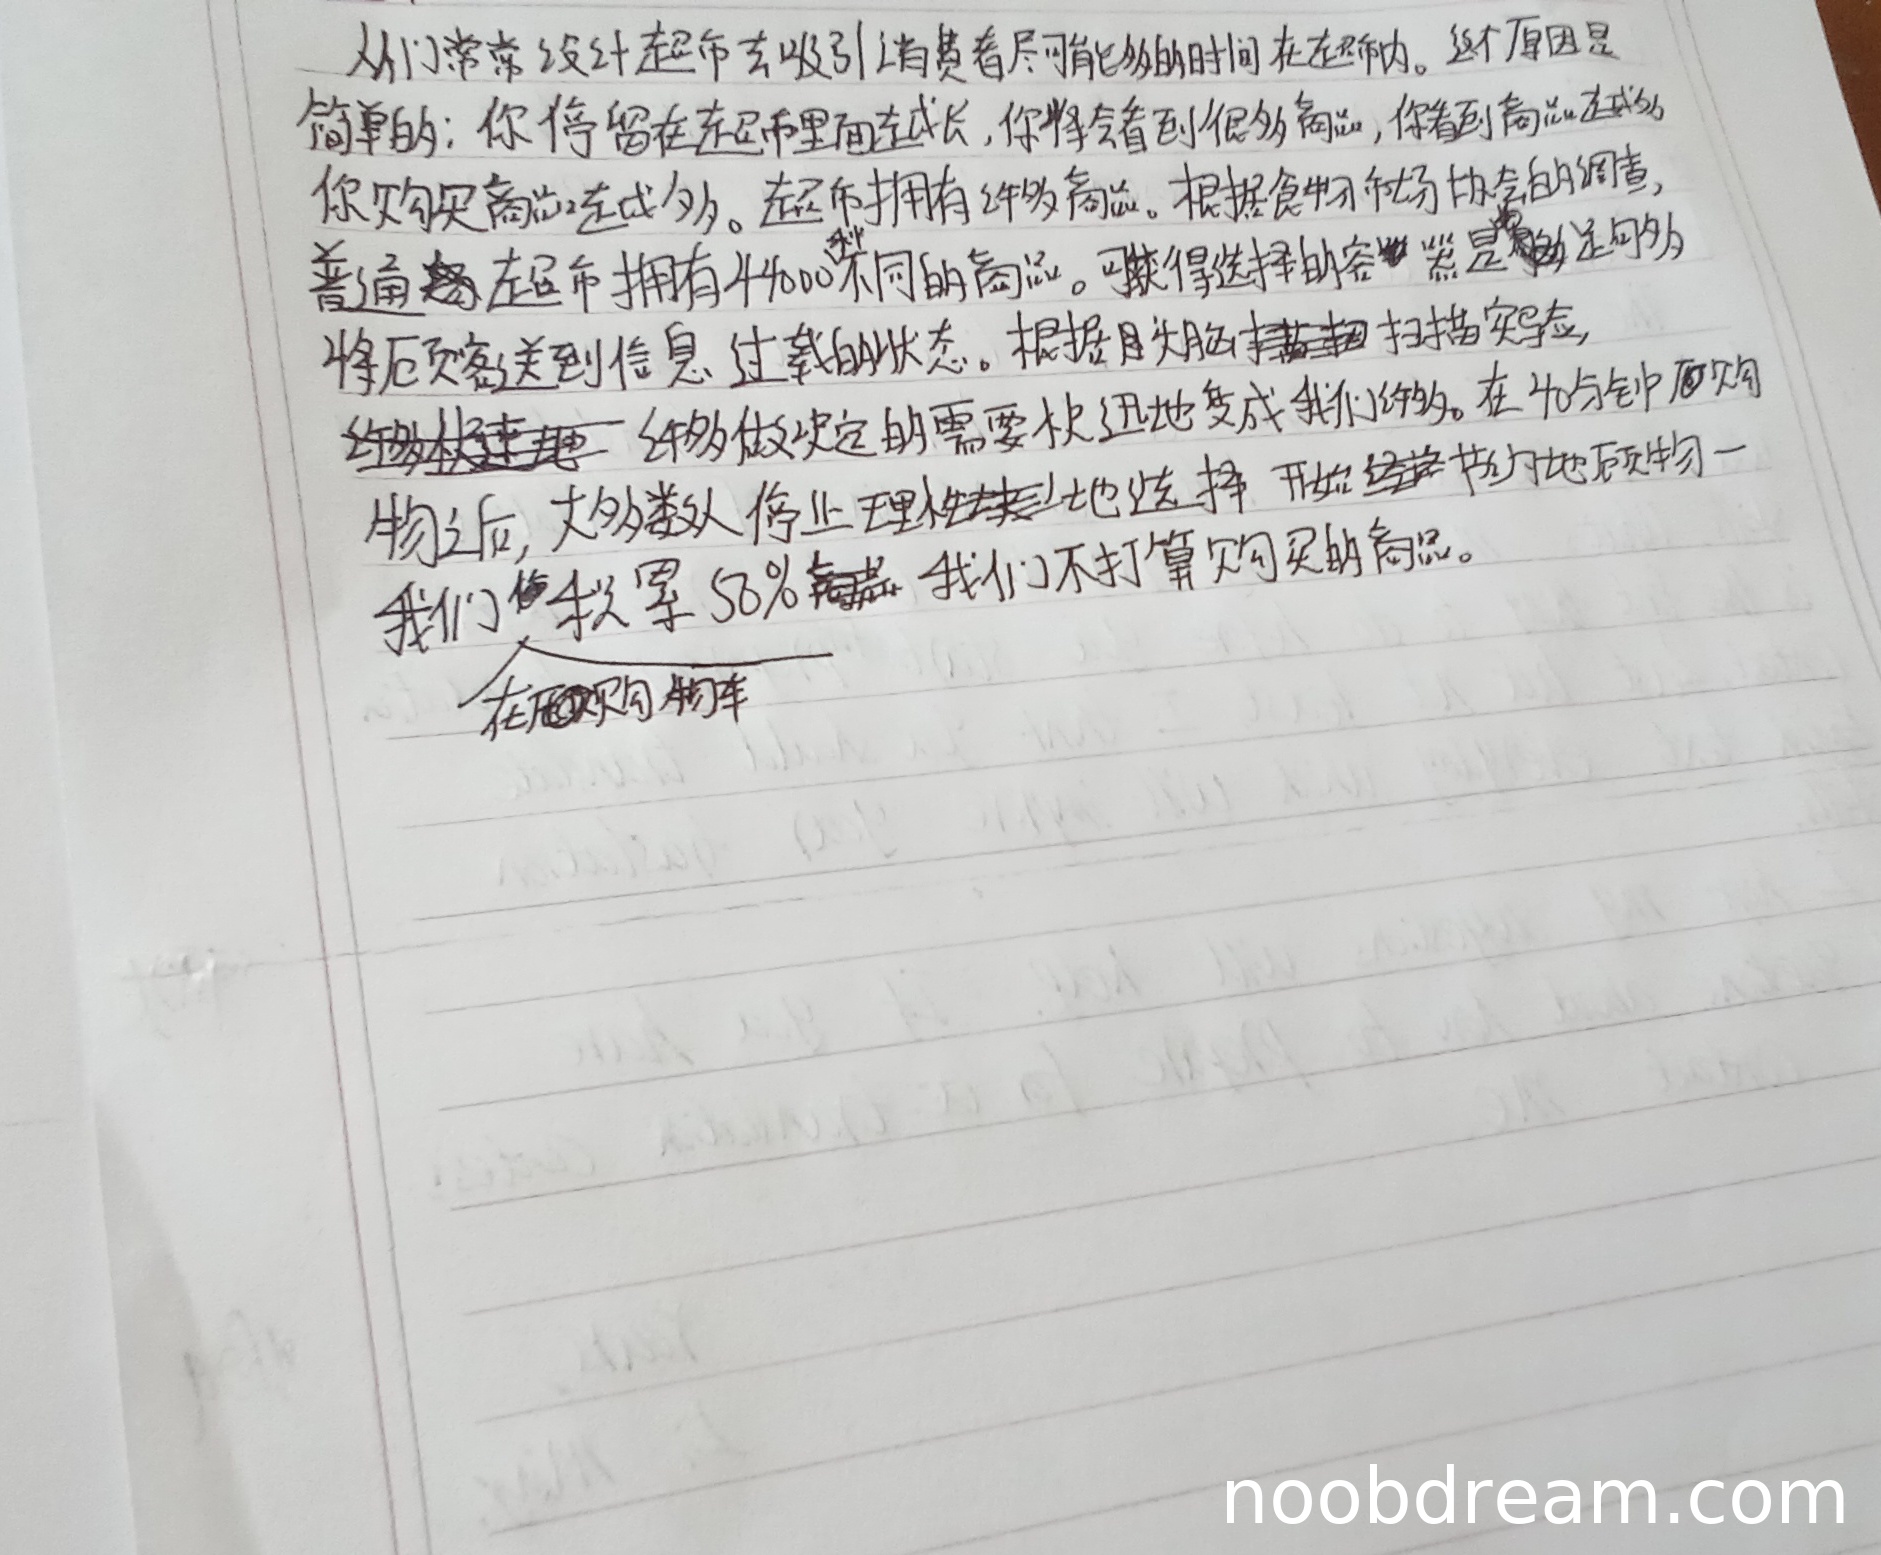 人们常常设计超市去吸引消费者尽可能多的时间在超市内。这个原因是
简单的：你停留在超市里面越长，你将会看到很多商品，你看到商品越多
你购买商品越多。超市拥有许多商品。根据食物市场协会的调查，
普通超市拥有44000种不同的商品。可获得选择的容器是足够多
将顾客送到信息过载的状态。根据头脑扫描实验，
许多做决定的需要快迅地变成我们许多。在40分钟购
物之后，大多数人停止理性地选择 开始 地顾物一
我们在购物车积累50%我们不打算购买的商品。
noobdream.com